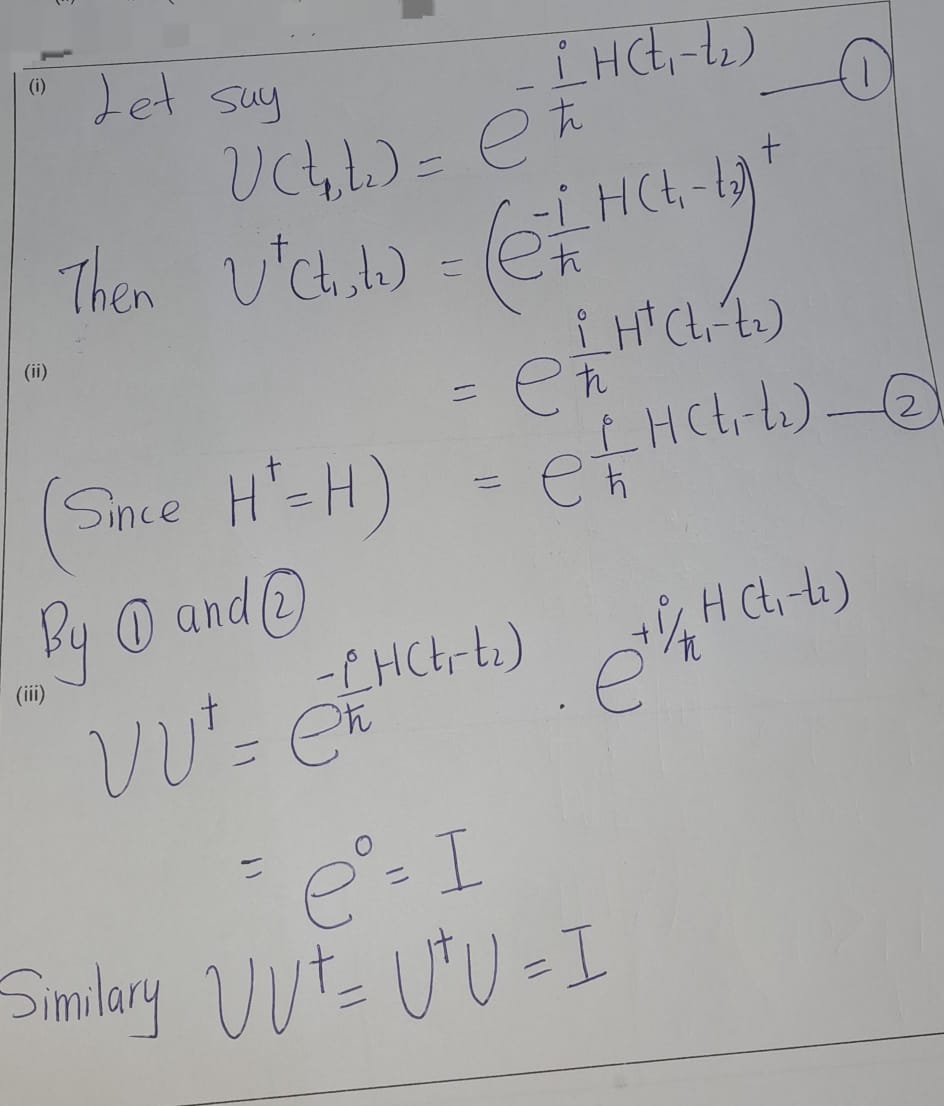 (i) Let say
U(t₁,t₂) = e^{-i/ħ H(t₁-t₂)} —①
Then U†(t₁,t₂) = (e^{-i/ħ H(t₁-t₂)})†
(ii)
= e^{i/ħ H†(t₁-t₂)}
(Since H†=H) = e^{i/ħ H(t₁-t₂)} —②
By ① and ②
(iii)
UU† = e^{-i/ħ H(t₁-t₂)} . e^{+i/ħ H(t₁-t₂)}
= e⁰ = I
Similary UU† = U†U = I